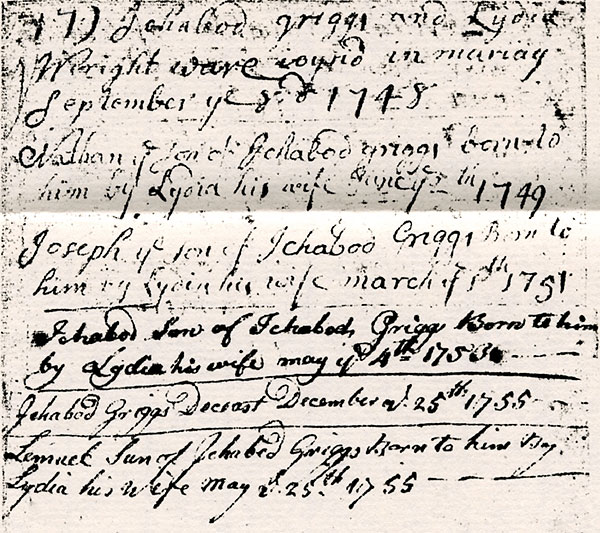 17) Ichabod griggs and Lydia
Wright ware joynd in mariag
September ye 8 d 1748
Nathan ye son of Ichabod griggs born to
him by Lydia his wife ye 5 th 1749
Joseph ye son of Ichabod Griggs Born to
him by Lydia his wife march ye 1th 1751
Ichabod Son of Ichabod Griggs Born to him
by Lydia his wife may ye 4th 1753
Ichabod Griggs Deceast December ye 25th 1755
Lemuel Sun of Ichabod Griggs Born to him By
Lydia his Wife May ye 25th 1755